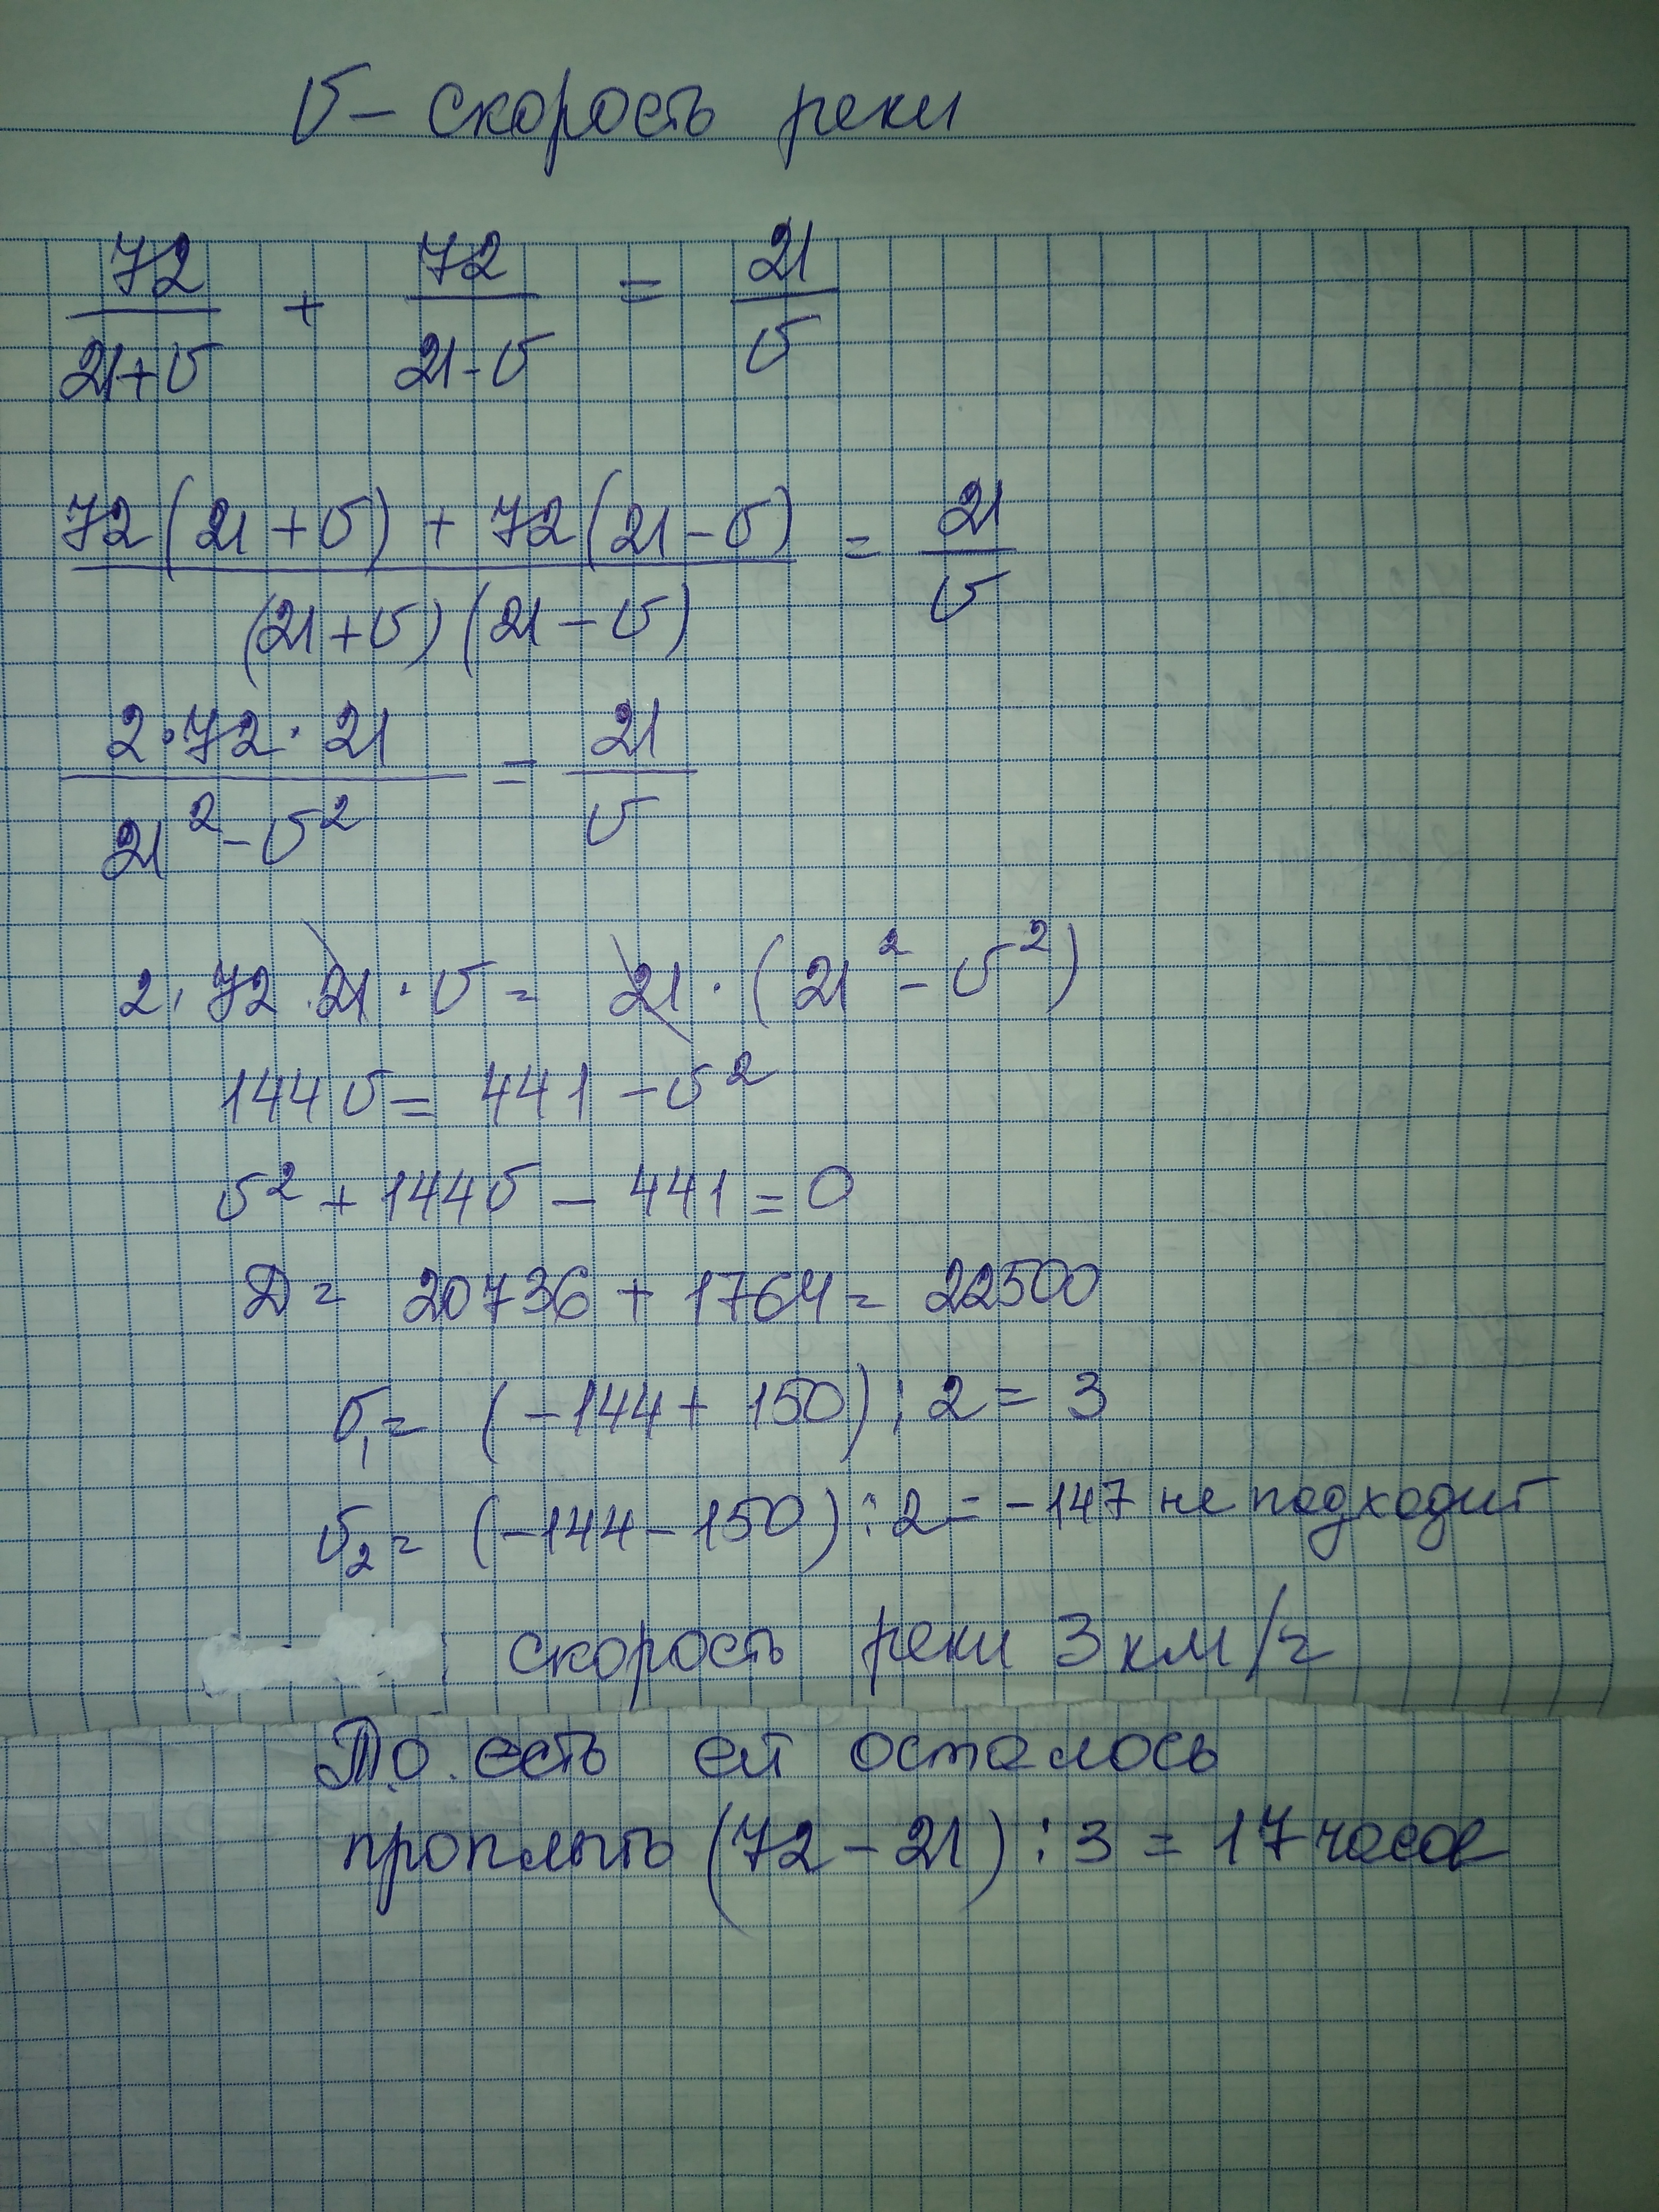 v – скорость реки
72/(21+v) + 72/(21-v) = 21/v
(72(21+v) + 72(21-v))/((21+v)(21-v)) = 21/v
(2·72·21)/(21²-v²) = 21/v
2·72·21·v = 21·(21²-v²)
144v = 441 - v²
v² + 144v - 441 = 0
D = 20736 + 1764 = 22500
v₁ = (-144 + 150) : 2 = 3
v₂ = (-144 - 150) : 2 = -147 не подходит
скорость реки 3 км/ч
То есть ей осталось
проплыть (72 - 21) : 3 = 17 часов